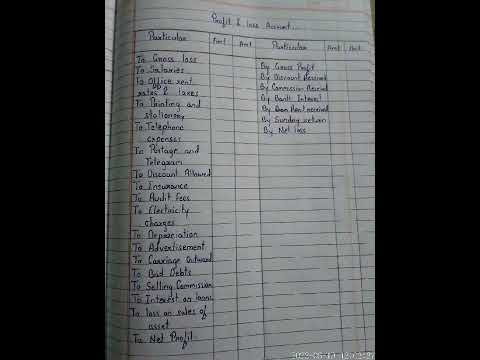 Profit & loss Account...
Particular Amt Amt Particular Amt Amt
To Gross loss
To Salaries
To Office rent
rates & taxes
To Printing and
stationery
To Telephone
expenses
To Postage and
Telegram
To Discount Allowed
To Insurance
To Audit Fees
To Electricity
charges
To Depreciation
To Advertisement
To Carriage Outward
To Bad Debts
To Selling Commission
To Interest on loans
To loss on sales of
asset
To Net Profit
By Gross Profit
By Discount Received
By Commission Received
By Bank Interest
By Rent received
By Sunday return
By Net loss